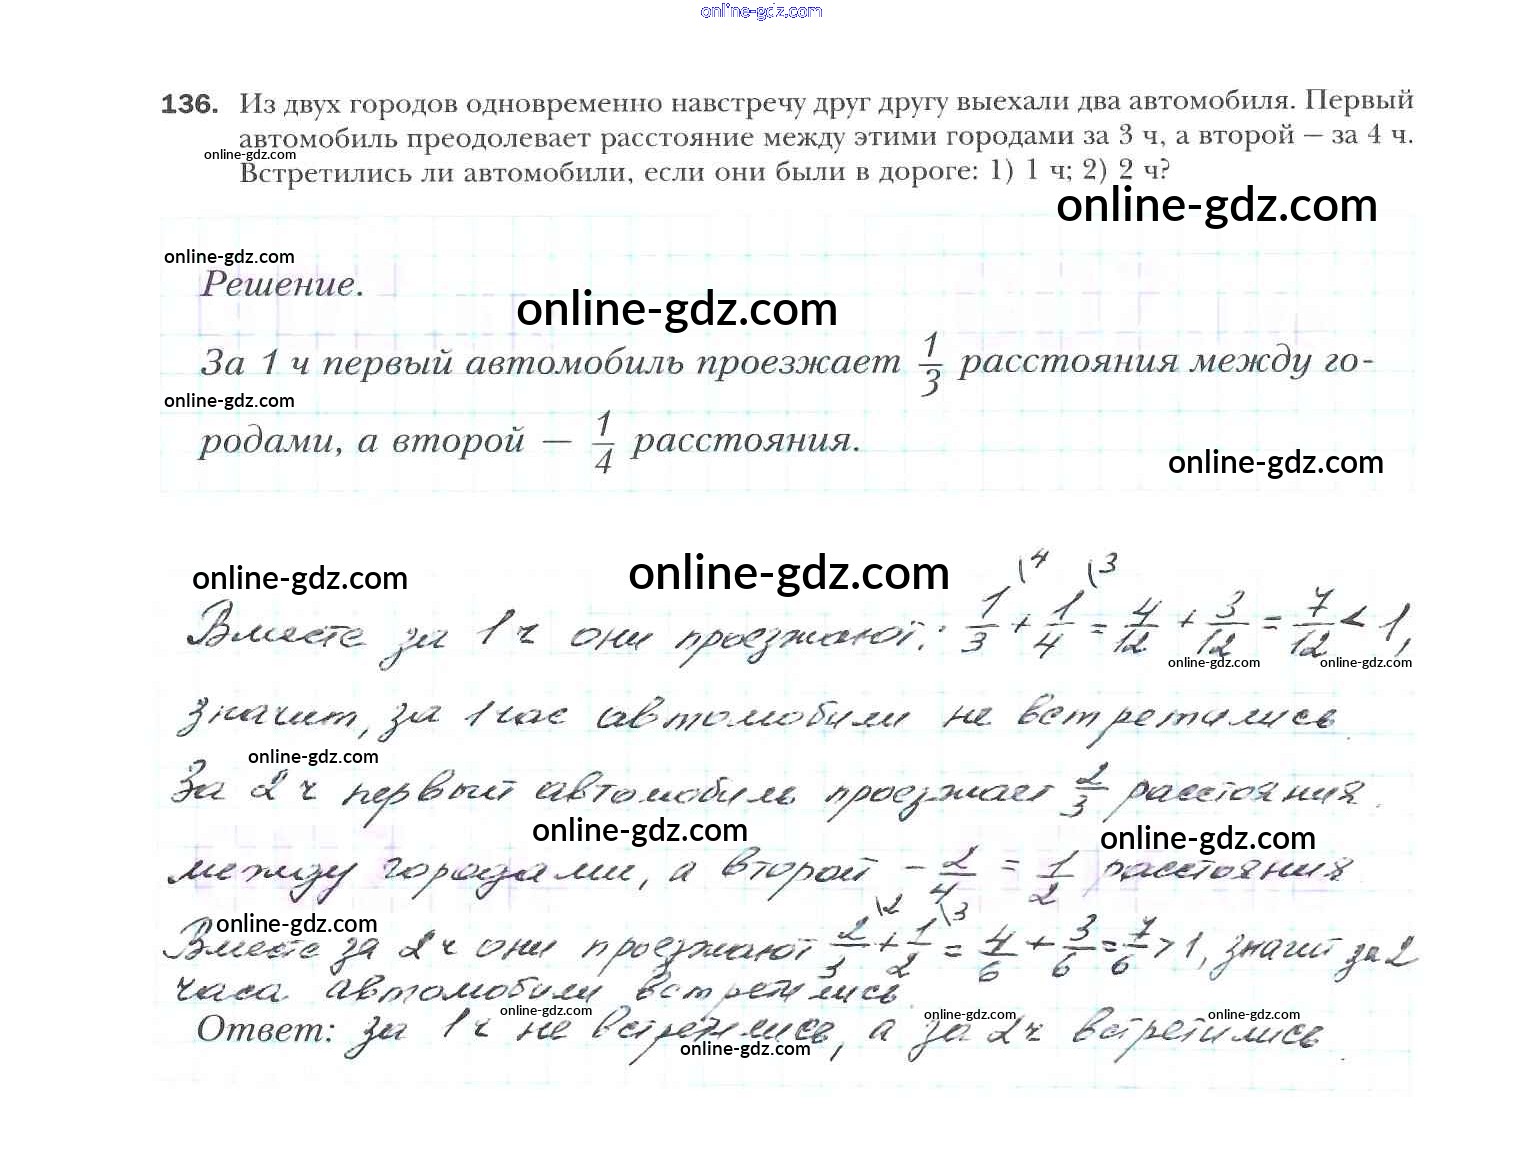 online-gdz.com
136. Из двух городов одновременно навстречу друг другу выехали два автомобиля. Первый
автомобиль преодолевает расстояние между этими городами за 3 ч, а второй — за 4 ч.
online-gdz.com
Встретились ли автомобили, если они были в дороге: 1) 1 ч; 2) 2 ч?
online-gdz.com
online-gdz.com
Решение.
online-gdz.com
За 1 ч первый автомобиль проезжает 1/3 расстояния между го-
online-gdz.com
родами, а второй — 1/4 расстояния.
online-gdz.com
online-gdz.com
online-gdz.com
Вместе за 1 ч они проезжают: 1/3 \4 + 1/4 \3 = 4/12 + 3/12 = 7/12 < 1,
online-gdz.com
online-gdz.com
значит, за 1 час автомобили не встретились.
online-gdz.com
За 2 ч первый автомобиль проезжает 2/3 расстояния
online-gdz.com
online-gdz.com
между городами, а второй – 2/4 = 1/2 расстояния
online-gdz.com
Вместе за 2 ч они проезжают 2/3 \2 + 1/2 \3 = 4/6 + 3/6 = 7/6 > 1, значит за 2
часа автомобили встретились
online-gdz.com
online-gdz.com
online-gdz.com
Ответ: за 1 ч не встретились, а за 2 ч встретились.
online-gdz.com